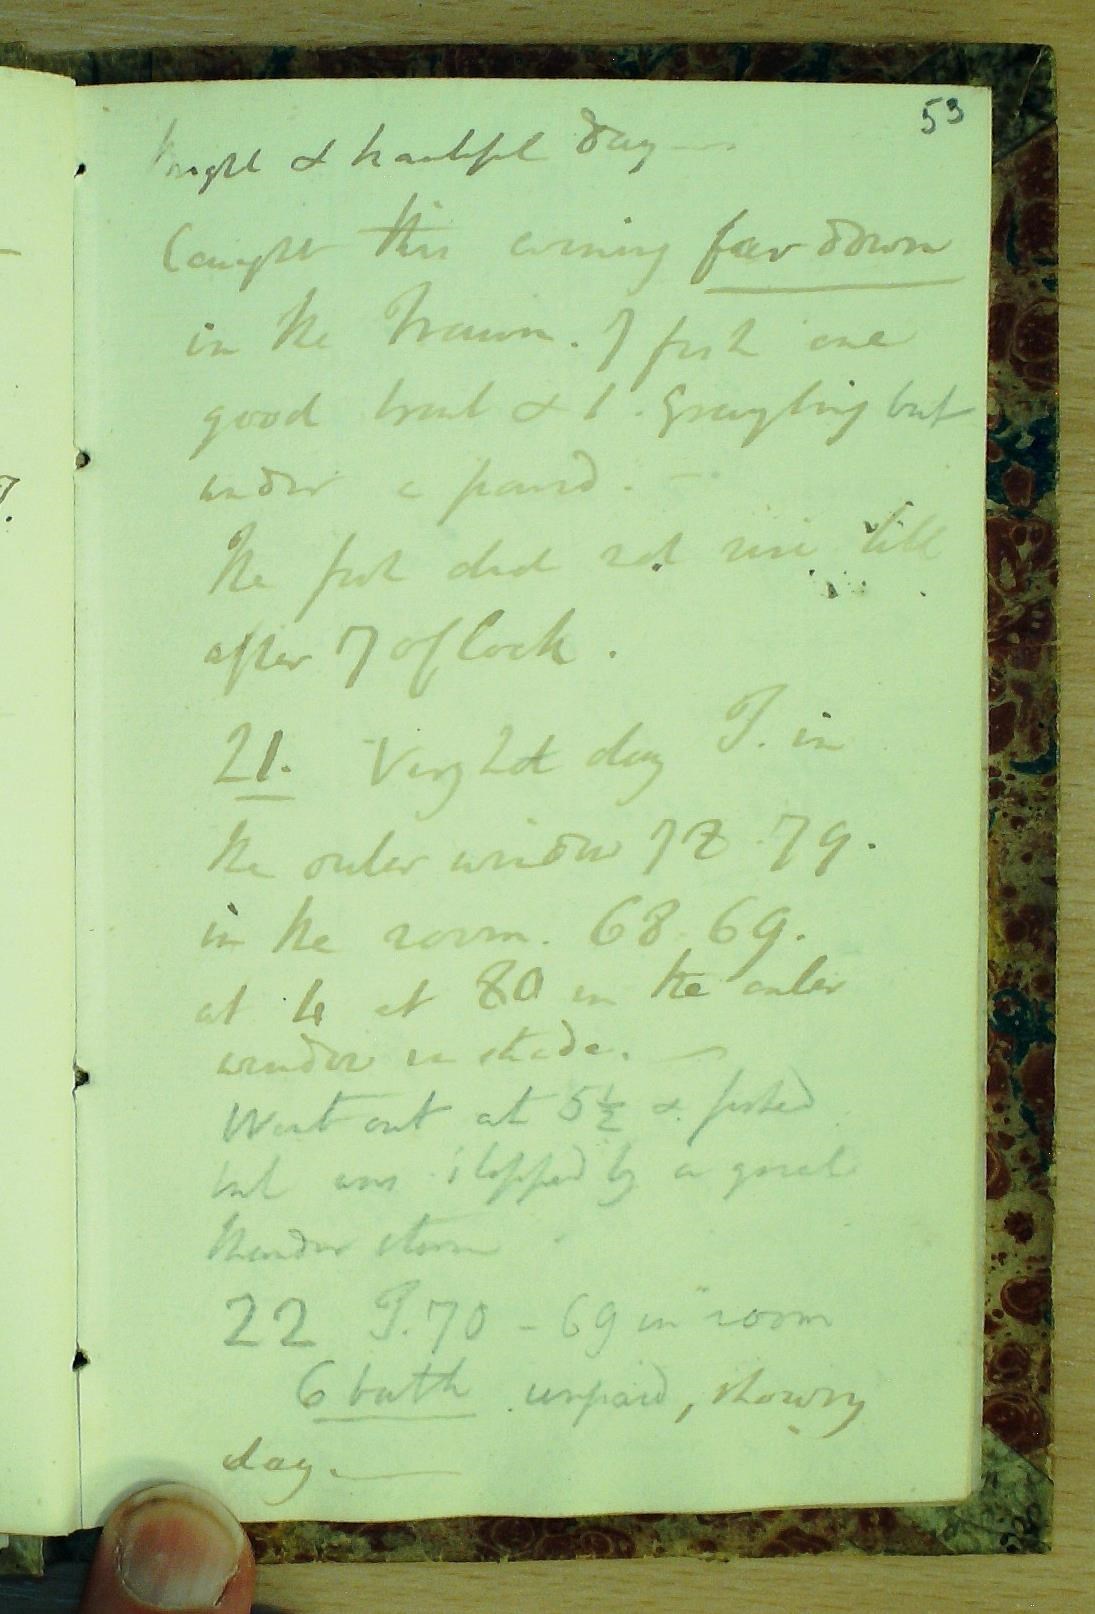 53
bright & beautiful day
Caught this evening far down
in the Traun. 7 fish one
good trout & 1. Grayling but
under a pound.
The fish did not rise till
after 7 o'clock.
21. Very hot day T. in
the outer window 78 79.
in the room. 68 69.
at 4 at 80 in the outer
window in shade.
Went out at 5½ & fished
but was stopped by a great
thunder storm
22 T. 70 - 69 in room
6 bath unpaid, showry
day.